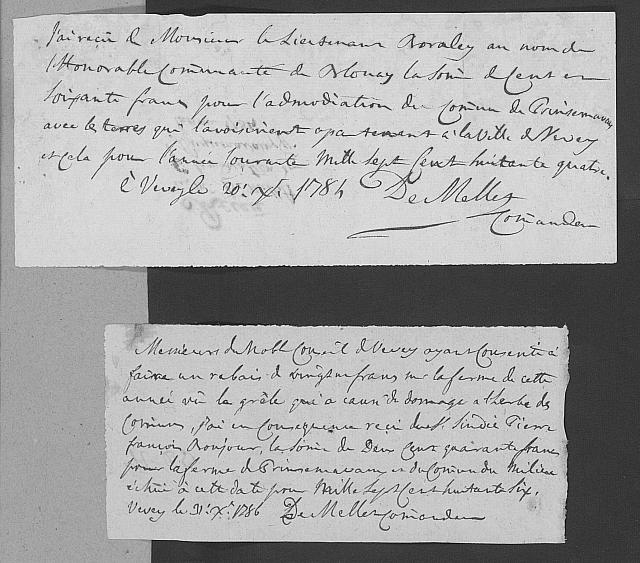 J'ai reçu de Monsieur le Lieutenant Boraley au nom de
l'Honorable Communauté de Blonay la Some de Cent et
Soixante francs pour l'admodiation du Comun de Prinsemavau
avec les terres qui l'avoisinent apartenant à la Ville de Vevey
et cela pour l'année Courante Mille Sept Cent huitante quatre.
à Vevey le 20e Xbre 1784 De Mellet
Comandeur
Messieurs du Noble Conseil de Vevey ayant Consenti à
faire un rabais de vingt francs sur la ferme de cette
année vû la grêle qui a causé de domage a l'herbe des
Comuns, j'ai en Consequence reçu du Sr. Sindic Pierre
françois Bonjour, la Some de Deux Cent quarante francs
pour la ferme de Prinsemavau et du Comun du Milieu
échue à cette date pour Mille Sept Cent huitante Six.
Vevey le 31e Xbre 1786 De Mellet Comandeur